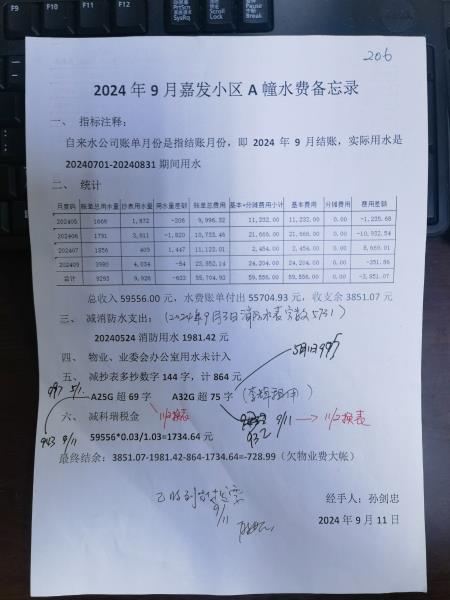 206
2024 年 9 月嘉发小区 A 幢水费备忘录
一、 指标注释:
自来水公司账单月份是指结账月份，即 2024 年 9 月结账，实际用水是
20240701-20240831 期间用水
二、 统计
月度码 账单总用水量 抄表用水量 用水量差额 账单总费用 基本+分摊费用小计 基本费用 分摊费用 费用差额
202405 1666 1,872 -206 9,996.32 11,232.00 11,232.00 0.00 -1,235.68
202406 1791 3,611 -1,820 10,733.46 21,666.00 21,666.00 0.00 -10,932.54
202407 1856 409 1,447 11,123.01 2,454.00 2,454.00 0.00 8,669.01
202409 3980 4,034 -54 23,852.14 24,204.00 24,204.00 0.00 -351.86
合计 9293 9,926 -633 55,704.93 59,556.00 59,556.00 0.00 -3,851.07
总收入 59556.00 元，水费账单付出 55704.93 元，收支余 3851.07 元
三、 减消防水支出：(2024年9月3日消防水表字数5731)
20240524 消防用水 1981.42 元
四、 物业、业委会办公室用水未计入
5月1日 995
五、 减抄表多抄数字 144 字，计 864 元
997 5/1
A25G 超 69 字 A32G 超 75 字
六、 减科瑞税金 11/2换表 932 9/11 → 11/2换表
943 9/11
59556*0.03/1.03=1734.64 元
最终结余：3851.07-1981.42-864-1734.64=-728.99（欠物业费大帐）
9/11
经手人：孙剑忠
2024 年 9 月 11 日